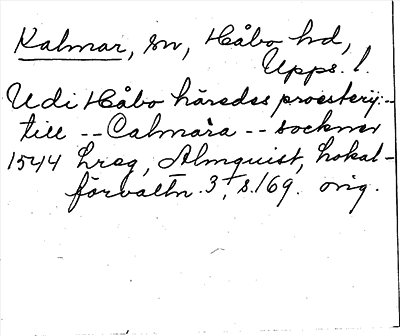 Kalmar, sn, Håbo hd,
Upps. l.
Udi Håbo häredes proesterij --
till -- Calmara -- sockner
1544 Lreg, Almquist, Lokal-
förvaltn. 3, s.169. orig.